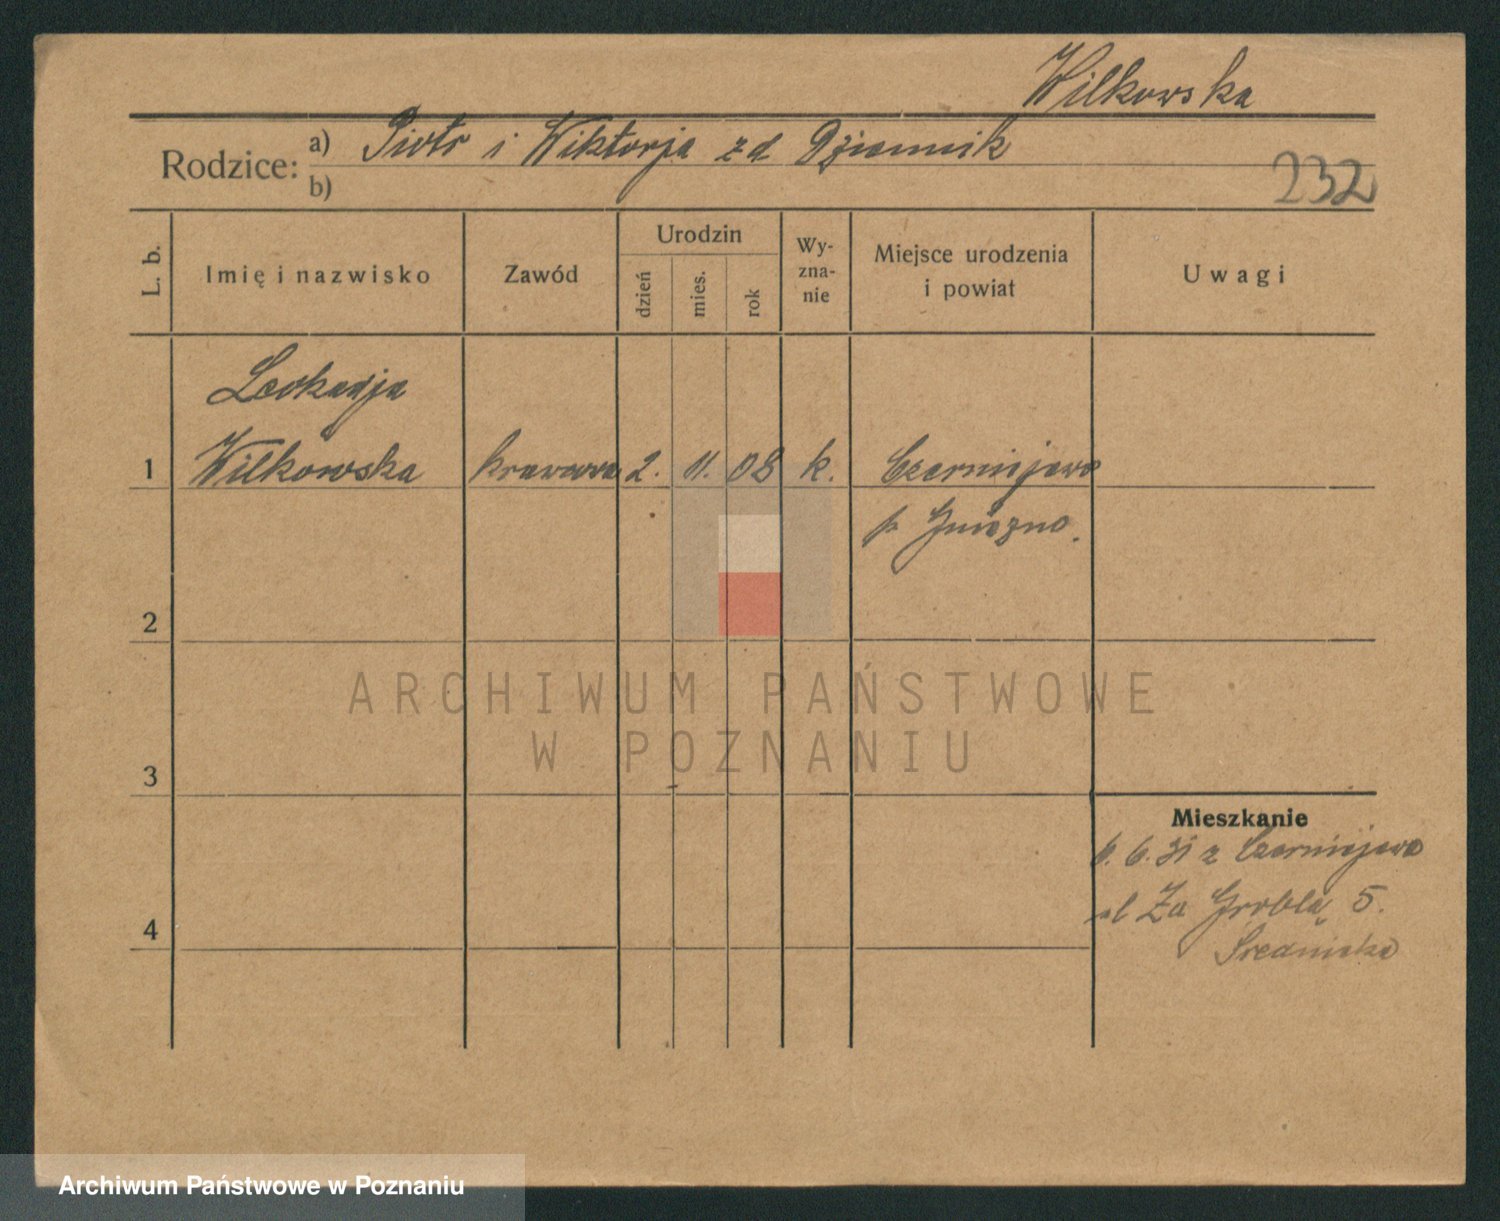 Wilkowska
Rodzice: a) Piotr i Wiktorja zd Dziennik
b)
232
L. b.
Imię i nazwisko
Zawód
Urodzin
dzień
mies.
rok
Wy-
zna-
nie
Miejsce urodzenia
i powiat
Uwagi
Leokadja
1 Wilkowska krawcowa 2. 11. 08 k. Czerniejewo
p. Gniezno.
2
3
4
Mieszkanie
6. 6. 31 z Czerniejewa
ul Za Groblą 5.
Średnicka
ARCHIWUM PAŃSTWOWE
W POZNANIU
Archiwum Państwowe w Poznaniu